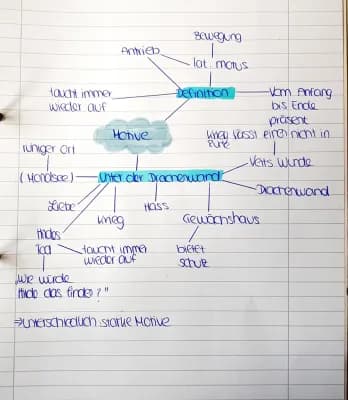 Bewegung
Antrieb
lat. motus
taucht immer
wieder auf
Definition
Vom Anfang
bis Ende
präsent
Motive
Krieg lässt einen nicht in
Ruhe
ruhiger Ort
Veits Wunde
(Mondsee)
Unter der Drachenwand
Drachenwand
Liebe
Krieg
Hass
Gewächshaus
Hildes
Tod
taucht immer
wieder auf
bietet
Schutz
"Wie würde
Hilde das finden?"
⇒ unterschiedlich starke Motive